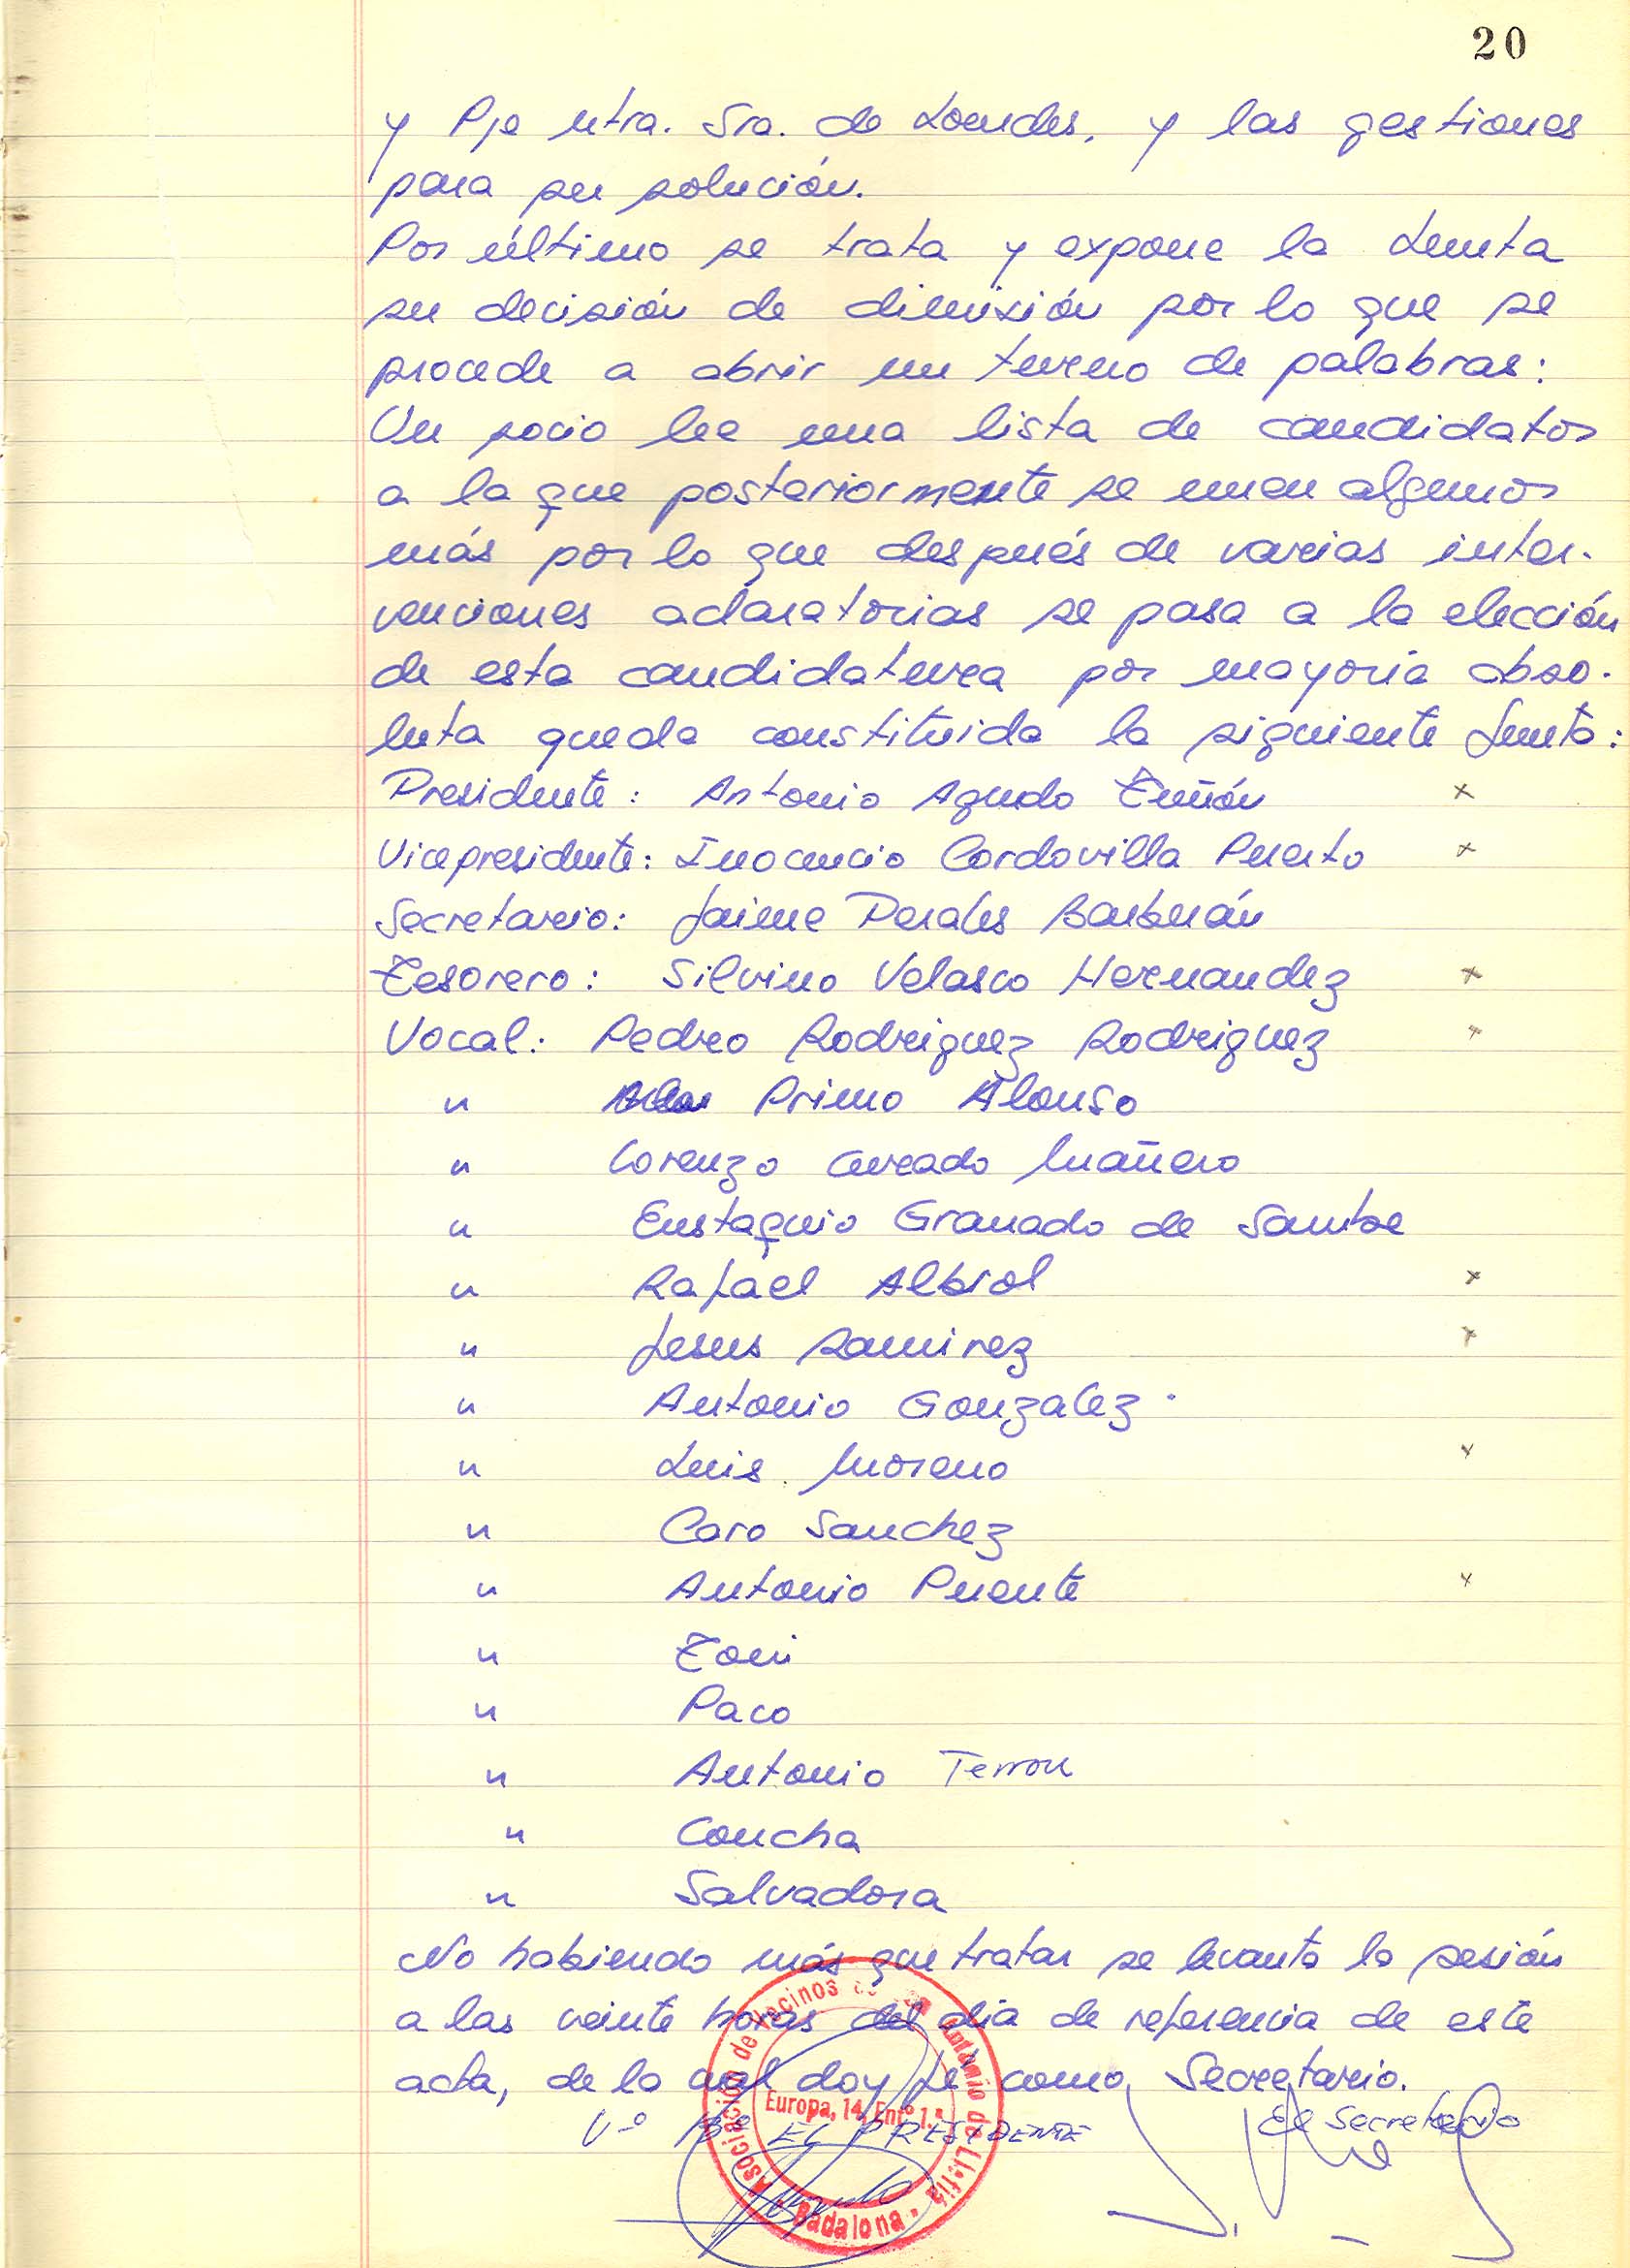 20
y Pje Ntra. Sra. de Lourdes, y las gestiones
para su solución.
Por último se trata y expone la Junta
su decisión de dimisión por lo que se
procede a abrir un turno de palabras:
Un socio lee una lista de candidatos
a la que posteriormente se unen algunos
más por lo que después de varias inter-
venciones aclaratorias se pasa a la elección
de esta candidatura por mayoria abso-
luta queda constituida la siguiente Junta:
Presidente: Antonio Agudo Tuñón x
Vicepresidente: Inocencio Cordovilla Puerto x
Secretario: Jaime Perales Barberán
Tesorero: Silvino Velasco Hernandez x
Vocal: Pedro Rodriguez Rodriguez x
" Primo Alonso
" Lorenzo Curado Muñero
" Eustaquio Granado de
" Rafael Albiol x
" Jesus Ramirez x
" Antonio Gonzalez
" Luis Moreno x
" Caro Sanchez
" Antonio Puente x
" Toni
" Paco
" Antonio Terron
" Concha
" Salvadora
No habiendo más que tratar se levanta la sesión
a las veinte horas del dia de referencia de este
acta, de lo cual doy fé como Secretario.
Vº Bº EL PRESIDENTE El Secretario
Asociación de Vecinos de San Antonio de Llefiá
Europa, 14, Entº 1.ª
Badalona